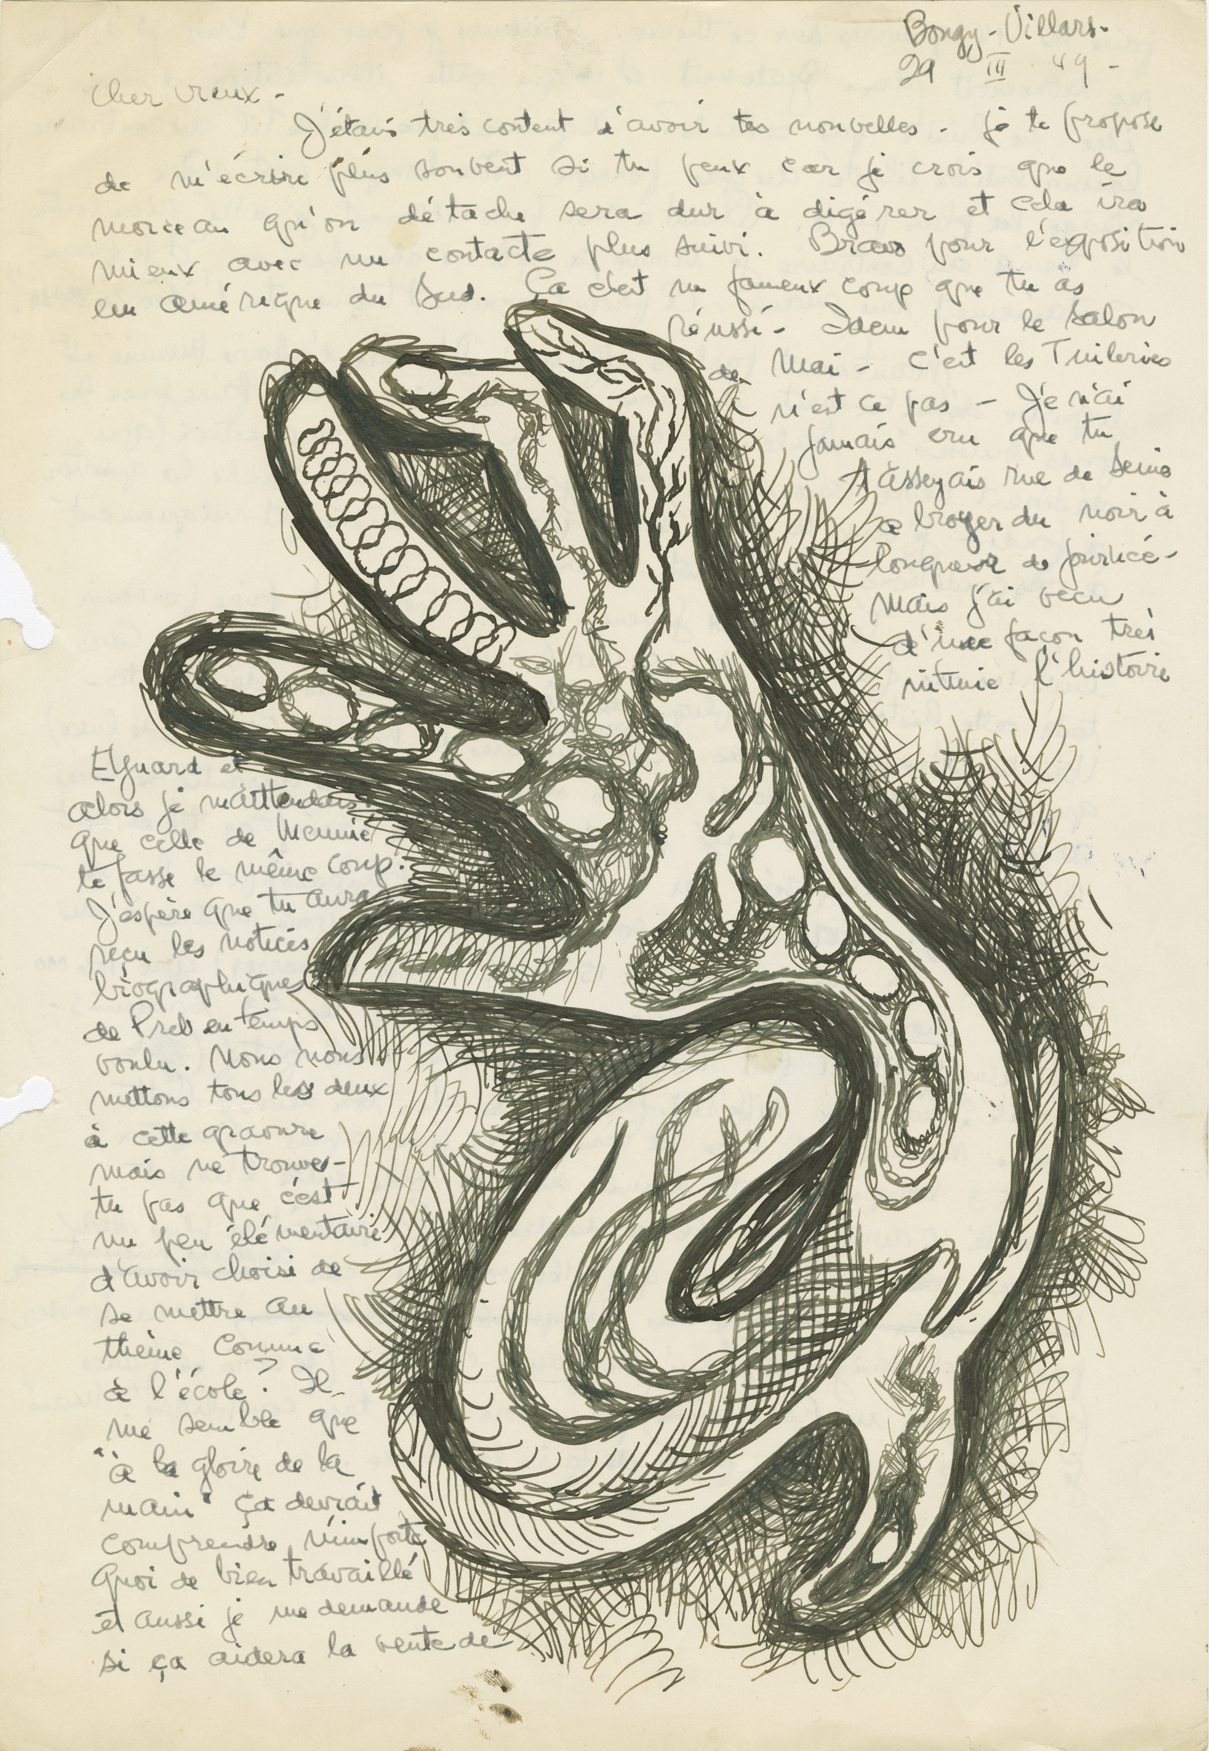 Bougy-Villars-
29 III 49-
Cher vieux-
J'étais très content d'avoir tes nouvelles. Je te propose
de m'écrire plus souvent si tu peux car je crois que le
morceau qu'on détache sera dur à digérer et cela ira
mieux avec un contacte plus suivi. Bravo pour l'exposition
en Amérique du Sud. Ça c'est un fameux coup que tu as
réussi- Idem pour le Salon
de Mai- c'est les Tuileries
n'est ce pas- Je n'ai
jamais cru que tu
t'asseyais rue de Seine
à broyer du noir à
longueur de journée-
Mais j'ai vécu
d'une façon très
intime l'histoire
Eluard et
alors je m'attendais
que celle de
te fasse le même coup.
J'espère que tu aura
reçu les notices
biographiques
de en temps
voulu. Nous nous
mettons tous les deux
à cette gravure
mais ne trouves-
tu pas que c'est
un peu élémentaire
d'avoir choisi de
se mettre au
thème comme
à l'école? Il
me semble que
"à la gloire de la
main" ça devrait
comprendre n'importe
quoi de bien travaillé
et aussi je me demande
si ça aidera la vente de